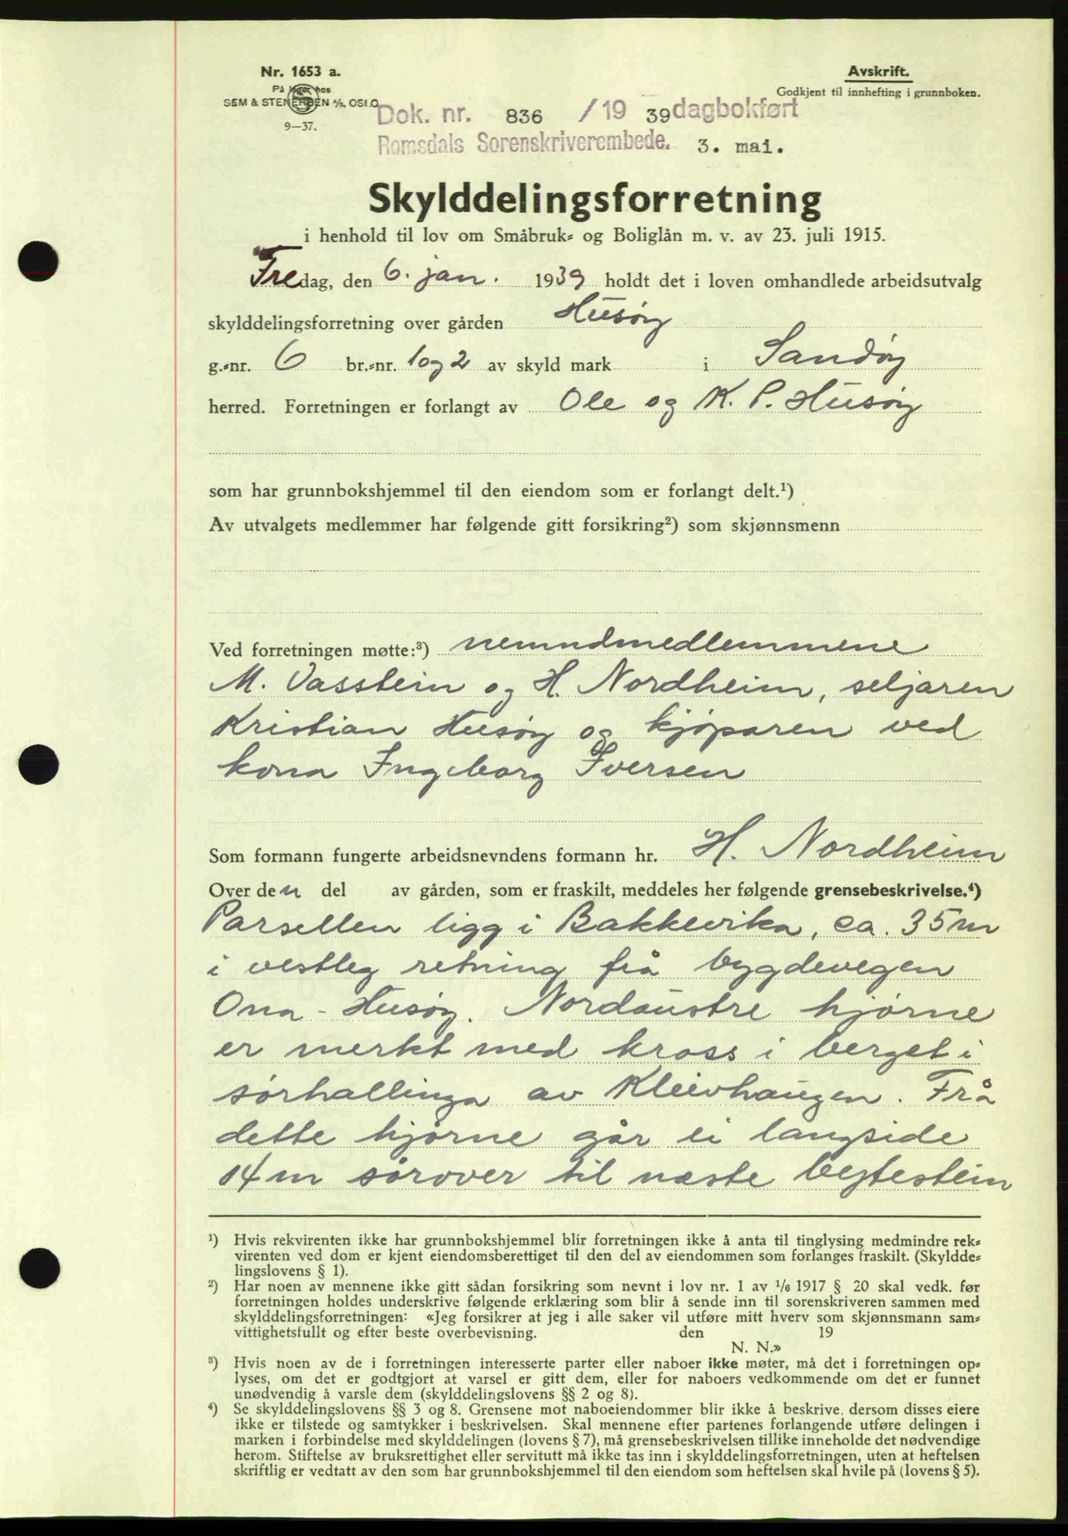 Nr. 1653 a.
På lager hos
SEM & STENERSEN A/S, OSLO
9—37.
Avskrift.
Godkjent til innhefting i grunnboken.
Dok. nr. 836 /19 39 dagbokført
Romsdals Sorenskriverembede. 3. mai.
Skylddelingsforretning
i henhold til lov om Småbruk- og Boliglån m. v. av 23. juli 1915.
Fredag, den 6. jan. 1939 holdt det i loven omhandlede arbeidsutvalg
skylddelingsforretning over gården Husøy
g.-nr. 6 br.-nr. 1 og 2 av skyld mark i Sandøy
herred. Forretningen er forlangt av Ole og K. P. Husøy
som har grunnbokshjemmel til den eiendom som er forlangt delt.¹)
Av utvalgets medlemmer har følgende gitt forsikring²) som skjønnsmenn
Ved forretningen møtte:³) nemndmedlemmene
M. Vasstein og H. Nordheim, seljaren
Kristian Husøy og kjøparen ved
kona Ingeborg Iversen
Som formann fungerte arbeidsnevndens formann hr. H. Nordheim
Over den del av gården, som er fraskilt, meddeles her følgende grensebeskrivelse.⁴)
Parsellen ligg i Bakkevika, ca. 35 m
i vestleg retning frå bygdevegen
Ona - Husøy. Nordaustre hjørne
er merkt med kross i berget i
sørhallinga av Kleivhaugen. Frå
dette hjørne går ei langside
14 m sørover til næste bytestein
¹) Hvis rekvirenten ikke har grunnbokshjemmel blir forretningen ikke å anta til tinglysing medmindre rek-
virenten ved dom er kjent eiendomsberettiget til den del av eiendommen som forlanges fraskilt. (Skyldde-
lingslovens § 1).
²) Har noen av mennene ikke gitt sådan forsikring som nevnt i lov nr. 1 av 1/6 1917 § 20 skal vedk. før
forretningen holdes underskrive følgende erklæring som blir å sende inn til sorenskriveren sammen med
skylddelingsforretningen: «Jeg forsikrer at jeg i alle saker vil utføre mitt hverv som skjønnsmann sam-
vittighetsfullt og efter beste overbevisning. den 19
N. N.»
³) Hvis noen av de i forretningen interesserte parter eller naboer ikke møter, må det i forretningen op-
lyses, om det er godtgjort at varsel er gitt dem, eller for naboers vedkommende om det er funnet
unødvendig å varsle dem (skylddelingslovens §§ 2 og 8).
⁴) Se skylddelingslovens §§ 3 og 8. Grensene mot naboeiendommer blir ikke å beskrive, dersom disses eiere
ikke er tilstede og samtykker i beskrivelsen. Skal mennene efter partenes forlangende utføre delingen i
marken i forbindelse med skylddelingen (lovens § 7), må grensebeskrivelsen tillike inneholde det nødvendige
herom. Stiftelse av bruksrettighet eller servitutt må ikke tas inn i skylddelingsforretningen, uten at heftelsen
skriftlig er vedtatt av den som har grunnbokshjemmel til den eiendom som heftelsen skal hvile på (lovens § 5).